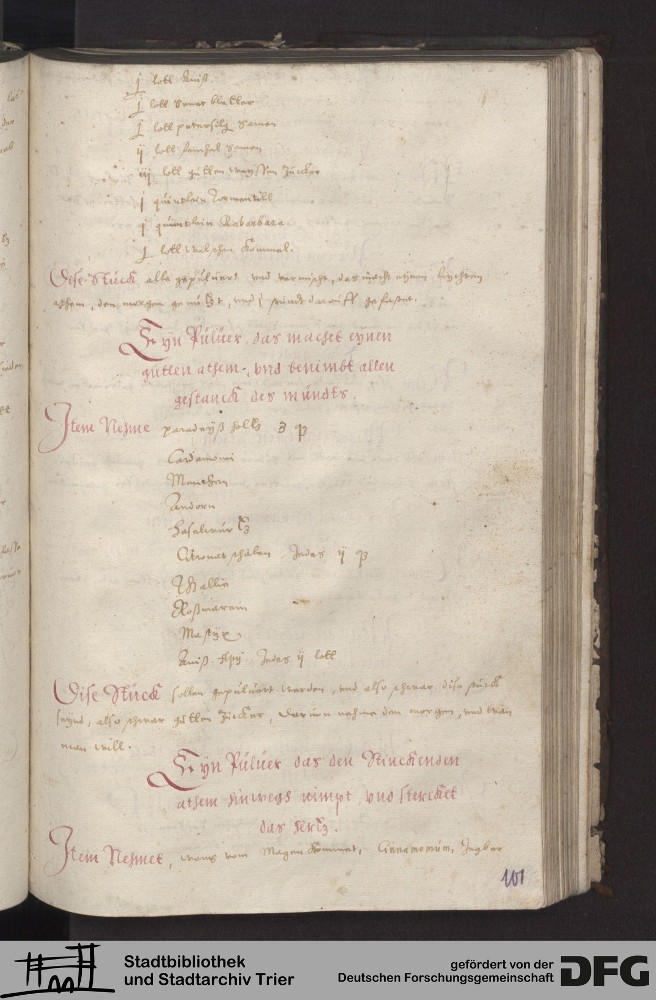 j lott Aniß.
j lott Senet bletter
j lott petersilg Samen
ij lott fenchel Samen
iij lott gutten weyssen Zucker
j quintlein Tormentill
j quintlein Rabarbara
j lott welschen kommel.
Dise Stuck alle gepuluert vnd vermischt, das macht eynen leychten
athem, den morgen genutzt, vnd j stundt daruff gefastet.
Eyn Puluer das machet eynen
gutten athem, vnd benimbt allen
gestanck des mundts.
Item Nehme paradeyß holtz 3
Cardamomi
Muschen
Andorn
haselwurtz
Citronat schalen Jedes ij
Rosmarein
Mastix
Aniß Jedes ij lott
Dise Stuck sollen gepuluert werden, vnd also schwar dise stuck
seynd, also schwar gutten Zucker, daruon nehme den morgen, vnd wan
man will.
Eyn Puluer das den Stinckenden
athem hinwegk nimpt, vnd sterckett
das hertz.
Item Nehmet, wans vom Magen kommet, Cinnamomum, Ingber
101
Stadtbibliothek
und Stadtarchiv Trier
gefördert von der
Deutschen Forschungsgemeinschaft
DFG